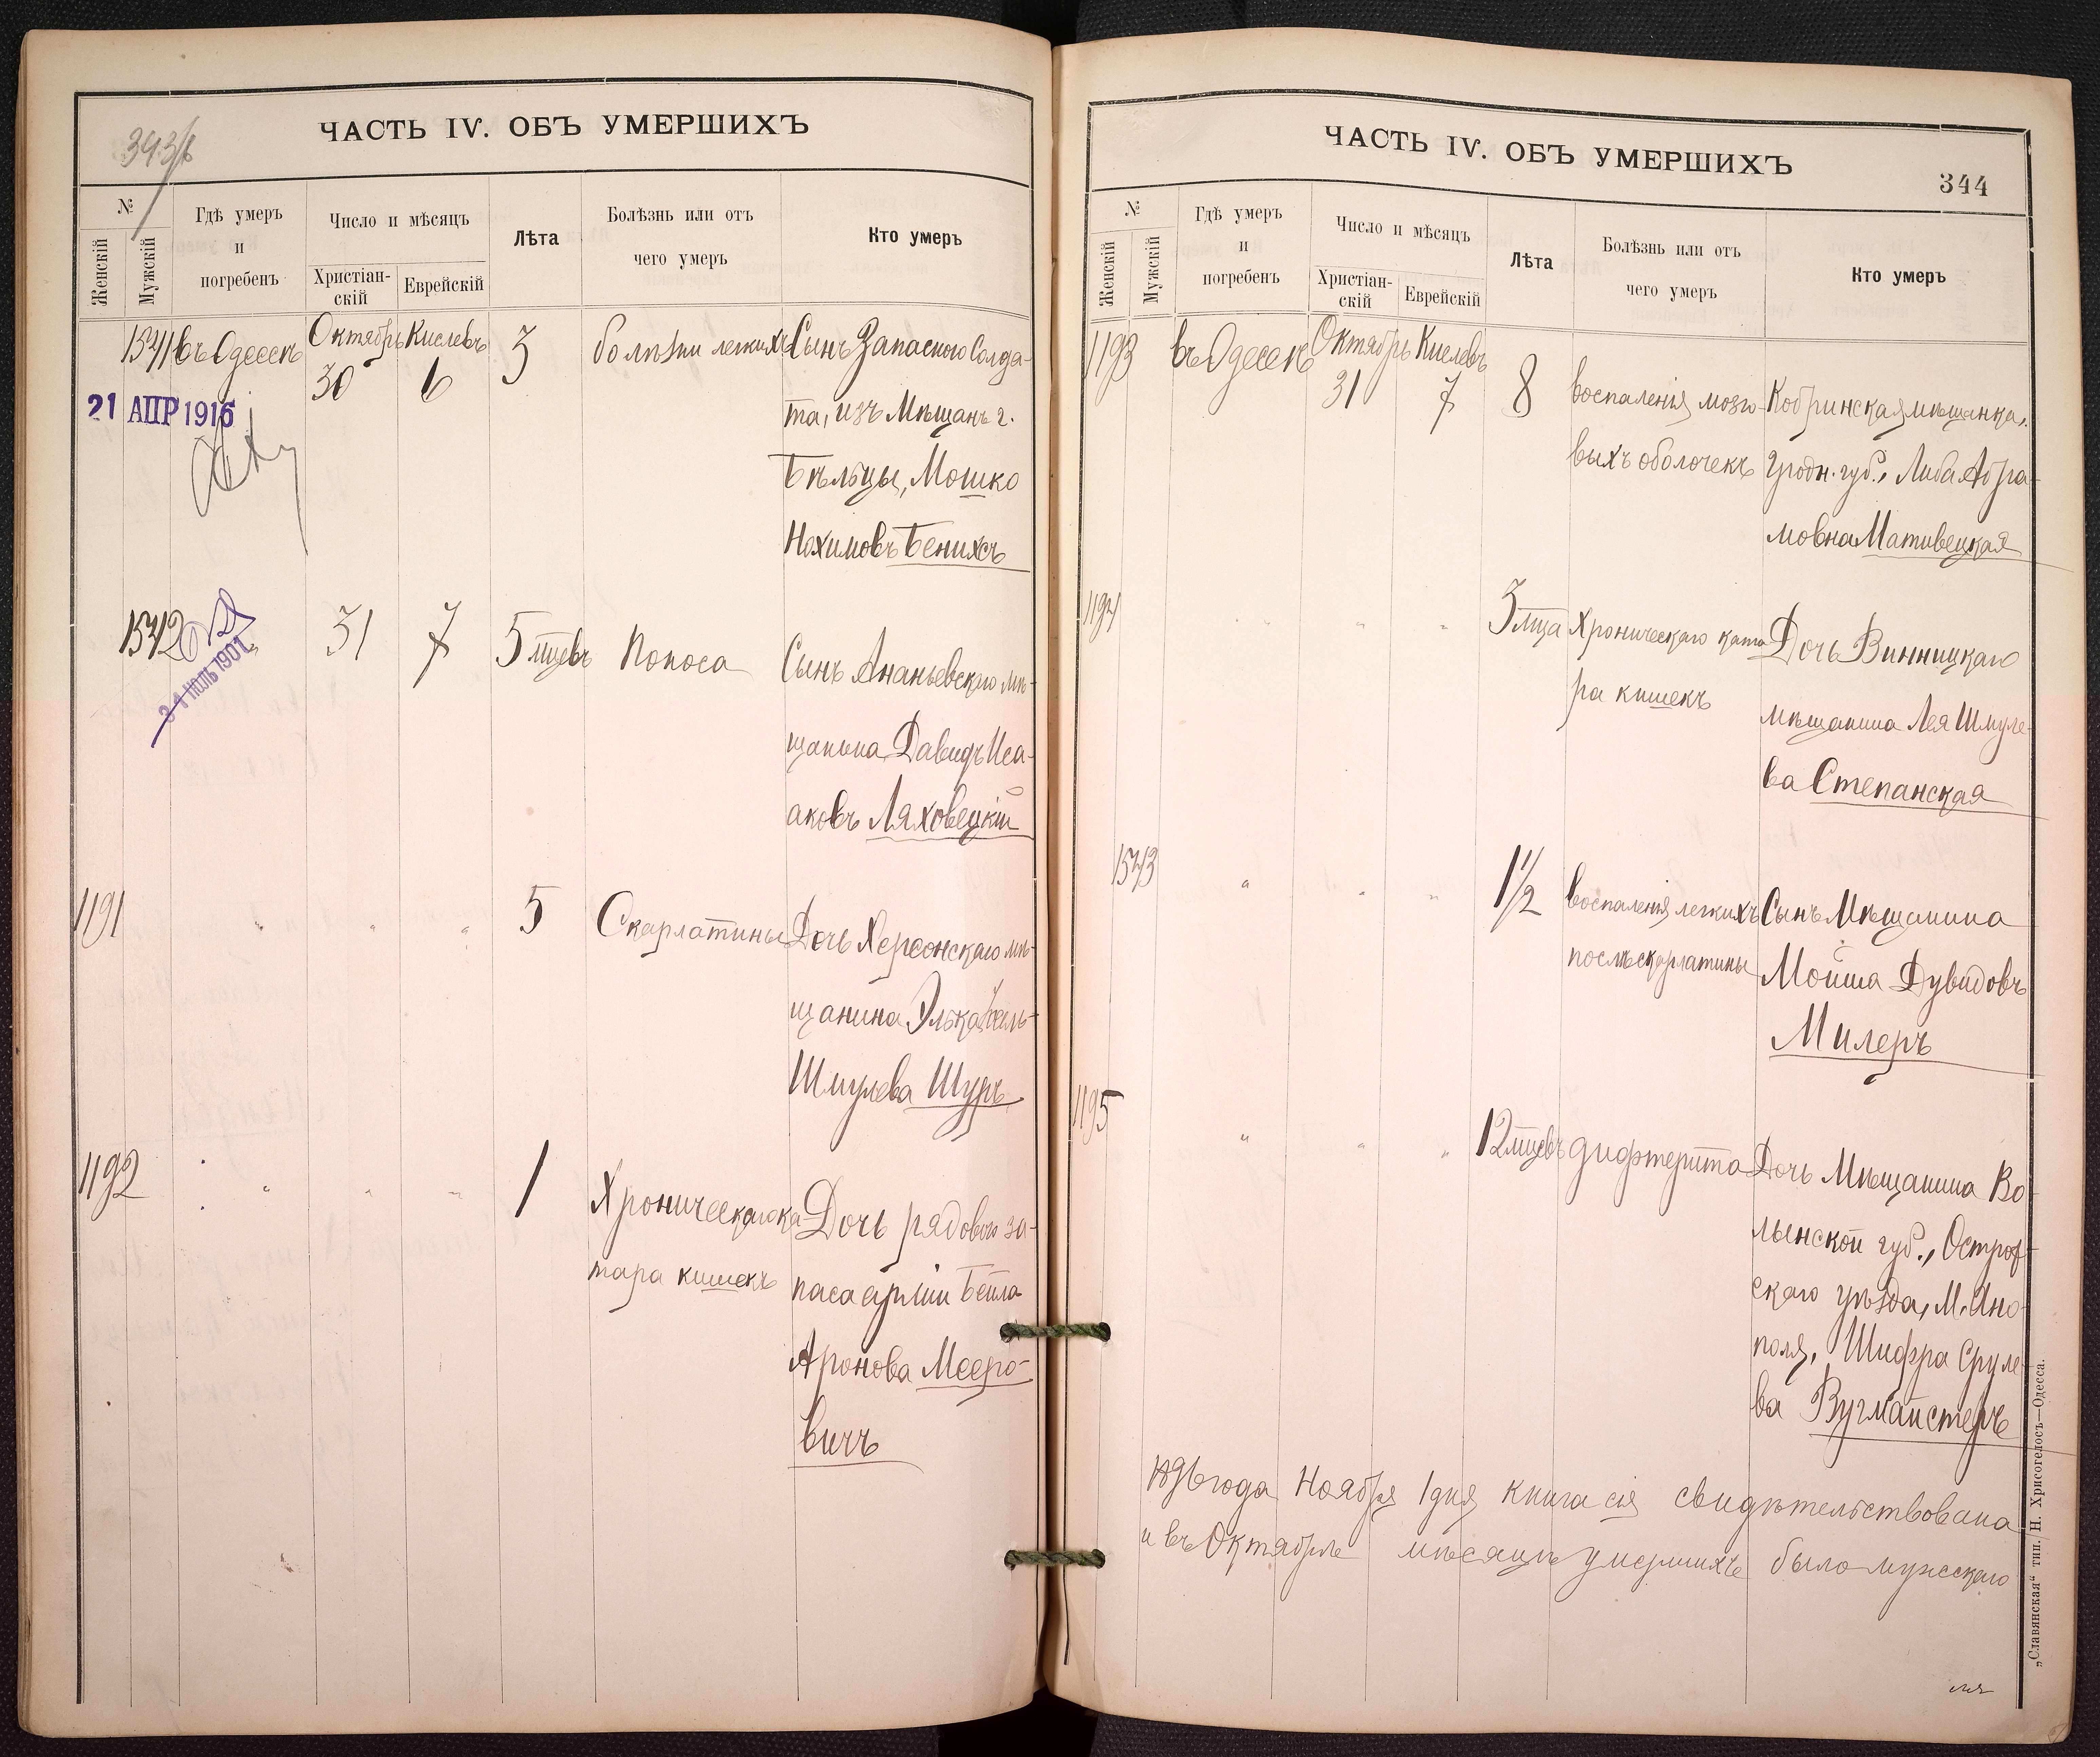 ЧАСТЬ IV. ОБЪ УМЕРШИХЪ
№
Женскій
Мужскій
Гдѣ умеръ
и
погребенъ
Число и мѣсяцъ
Христіан-
скій
Еврейскій
Лѣта
Болѣзнь или отъ
чего умеръ
Кто умеръ
въ Одессѣ
Октябрь
30
Кислевъ
6
3
болѣзни легкихъ
Сынъ Запасного Солда-
та, изъ Мѣщанъ г.
Бѣльцы, Мошко
Нохимовъ Бенихсъ
21 АПР 1916
1542
31
7
5 мцевъ
Поноса
Сынъ Ананьевскаго мѣ-
щанина Давидъ Иса-
аковъ Ляховецкій
1191
"
"
"
5
Скарлатины
Дочь Херсонскаго мѣ-
щанина Элька
Шмулева Шуръ
1192
"
"
"
1
Хроническаго ка-
тара кишекъ
Дочь рядового за-
паса арміи Бейла
Аронова Мееро-
вичъ
ЧАСТЬ IV. ОБЪ УМЕРШИХЪ
344
№
Женскій
Мужскій
Гдѣ умеръ
и
погребенъ
Число и мѣсяцъ
Христіан-
скій
Еврейскій
Лѣта
Болѣзнь или отъ
чего умеръ
Кто умеръ
1193
въ Одессѣ
Октябрь
31
Кислевъ
7
8
воспаленія мозго-
выхъ оболочекъ
Кобринская мѣщанка,
Гродн. губ., Либа Абра-
мовна Мативецкая
1194
"
"
"
3 мца
Хроническаго ката-
ра кишекъ
Дочь Винницкаго
мѣщанина Лея Шмуле-
ва Степанская
1543
"
"
"
1 1/2
воспаленія легкихъ
послѣ скарлатины
Сынъ Мѣщанина
Мойша Дувидовъ
Милеръ
1195
"
"
"
12 мцевъ
дифтерита
Дочь Мѣщанина Во-
лынской губ., Остро-
скаго уѣзда, М. Ано-
поля, Шифра Сруле-
ва Вугмайстеръ
1896 года Ноября 1 дня книга сія свидѣтельствована
и въ Октябрѣ мѣсяцѣ умершихъ было мужскаго
„Славянская“ тип. Н. Хрисогелосъ—Одесса.